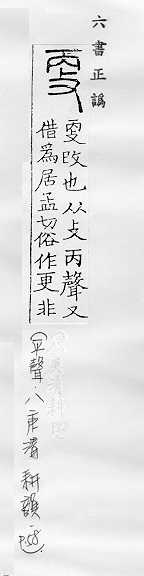 六書正譌
㪅
㪅改也从攴丙聲又
借爲居孟切俗作更非
(平聲.八庚清耕韻.p58)